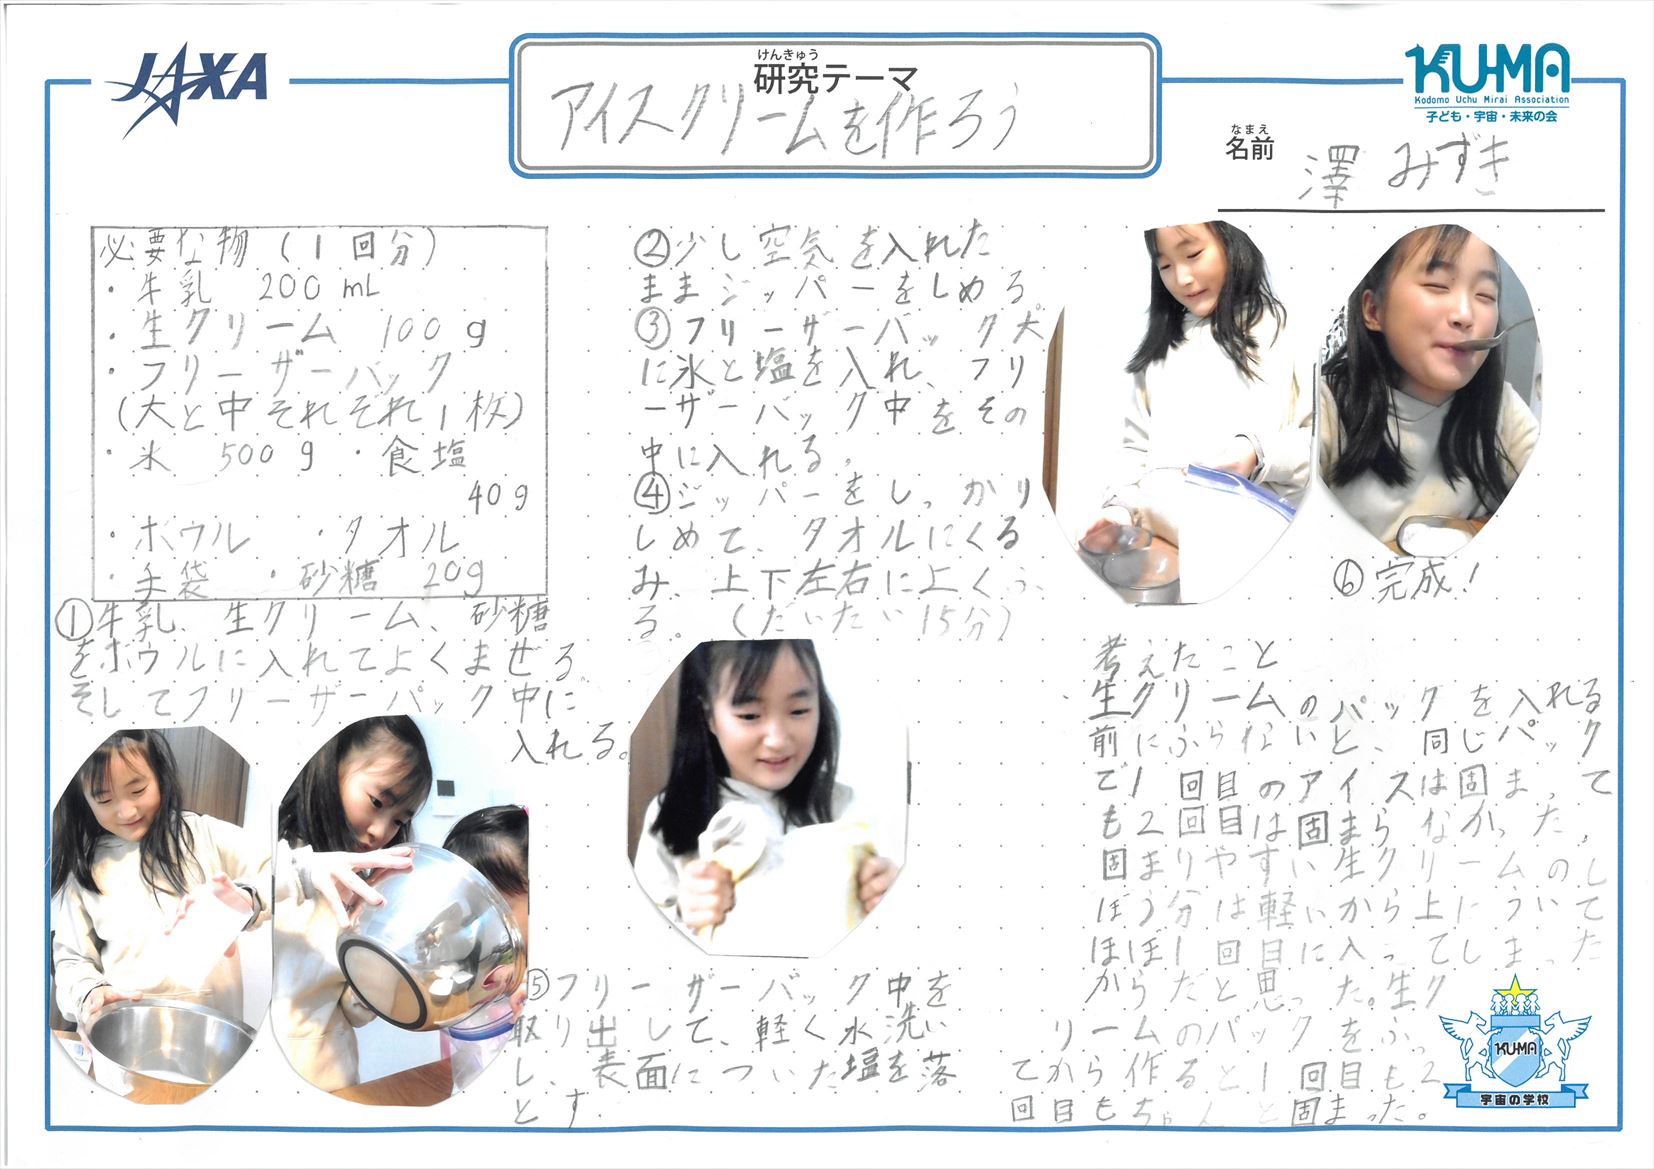 JAXA
けんきゅう
研究テーマ
アイスクリームを作ろう
KU-MA
Kodomo Uchu Mirai Association
子ども・宇宙・未来の会
なまえ
名前
澤 みずき
必要な物(1回分)
・牛乳 200mL
・生クリーム 100g
・フリーザーバック
(大と中それぞれ1枚)
・氷 500g ・食塩
40g
・ボウル ・タオル
・手袋 ・砂糖 20g
①牛乳、生クリーム、砂糖
をボウルに入れてよくまぜる。
そしてフリーザーパック中に
入れる。
②少し空気を入れた
ままジッパーをしめる。
③フリーザーバック大
に氷と塩を入れ、フリ
ーザーバック中をその
中に入れる。
④ジッパーをしっかり
しめて、タオルにくる
み、上下左右によくふ
る。(だいたい15分)
⑤フリーザーバック中を
取り出して、軽く水洗い
し、表面についた塩を落
とす.
⑥完成!
考えたこと
・生クリームのパックを入れる
前にふらないと、同じパック
で1回目のアイスは固まって
も2回目は固まらなかった。
固まりやすい生クリームのし
ぼう分は軽いから上にういて
ほぼ1回目に入ってしまった
からだと思った。生ク
リームのパックをふっ
てから作ると1回目も2
回目もちゃんと固まった。
KU-MA
宇宙の学校